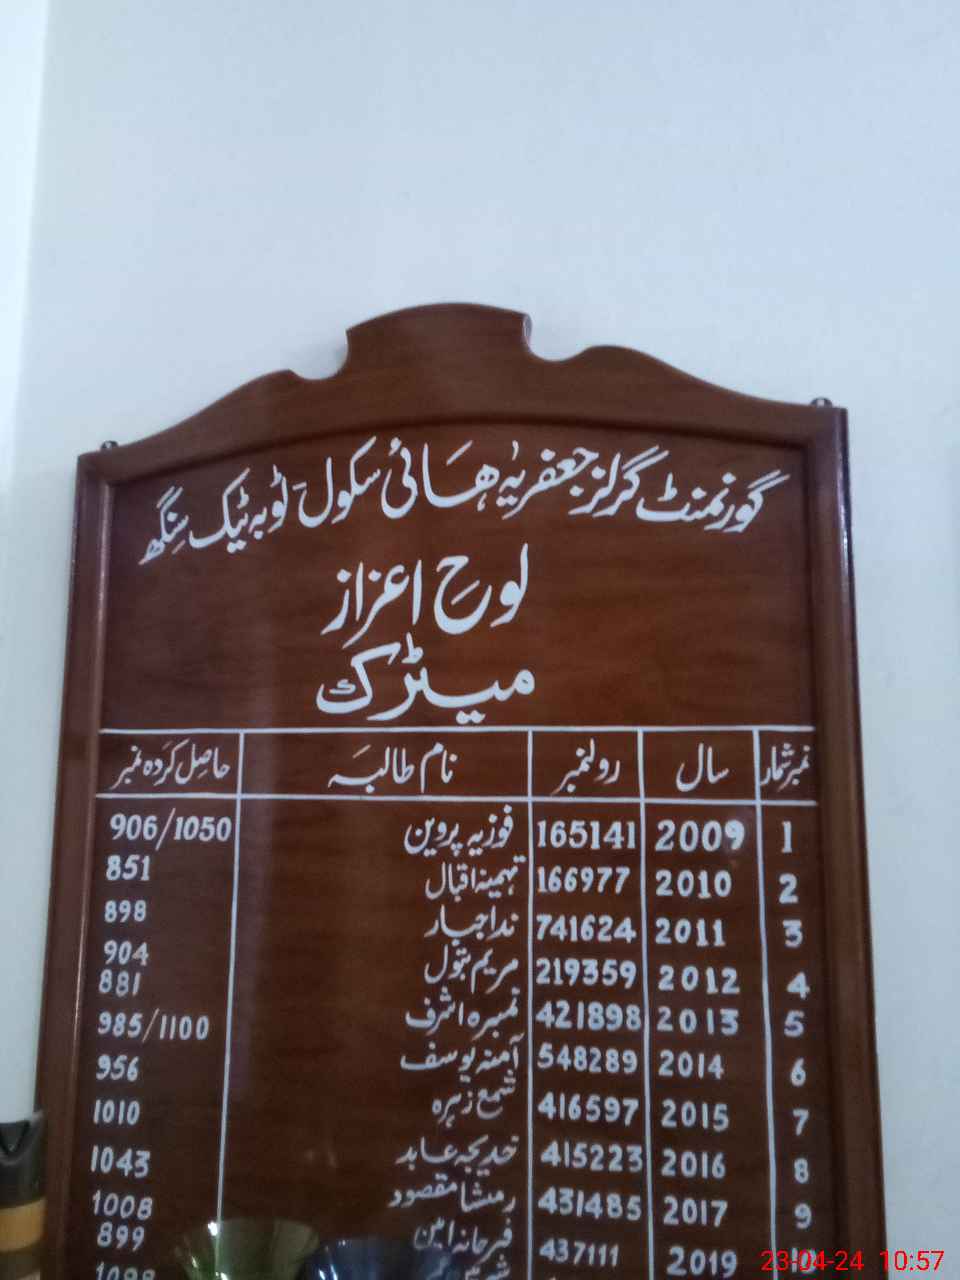 گورنمنٹ گرلز جعفریہ ہائی سکول ٹوبہ ٹیک سنگھ
لوحِ اعزاز
میٹرک
نمبر شمار سال رولنمبر نام طالبہ حاصل کردہ نمبر
1 2009 165141 فوزیہ پروین 906/1050
2 2010 166977 تہمینہ اقبال 851
3 2011 741624 ندا جبار 898
4 2012 219359 مریم بتول 904
5 2013 421898 نمبرہ اشرف 881
6 2014 548289 آمنہ یوسف 985/1100
7 2015 416597 شمع زہرہ 956
8 2016 415223 خدیجہ عابد 1010
9 2017 431485 رمشا مقصود 1043
2019 437111 فرحانہ امین 1008
899
23-04-24 10:57